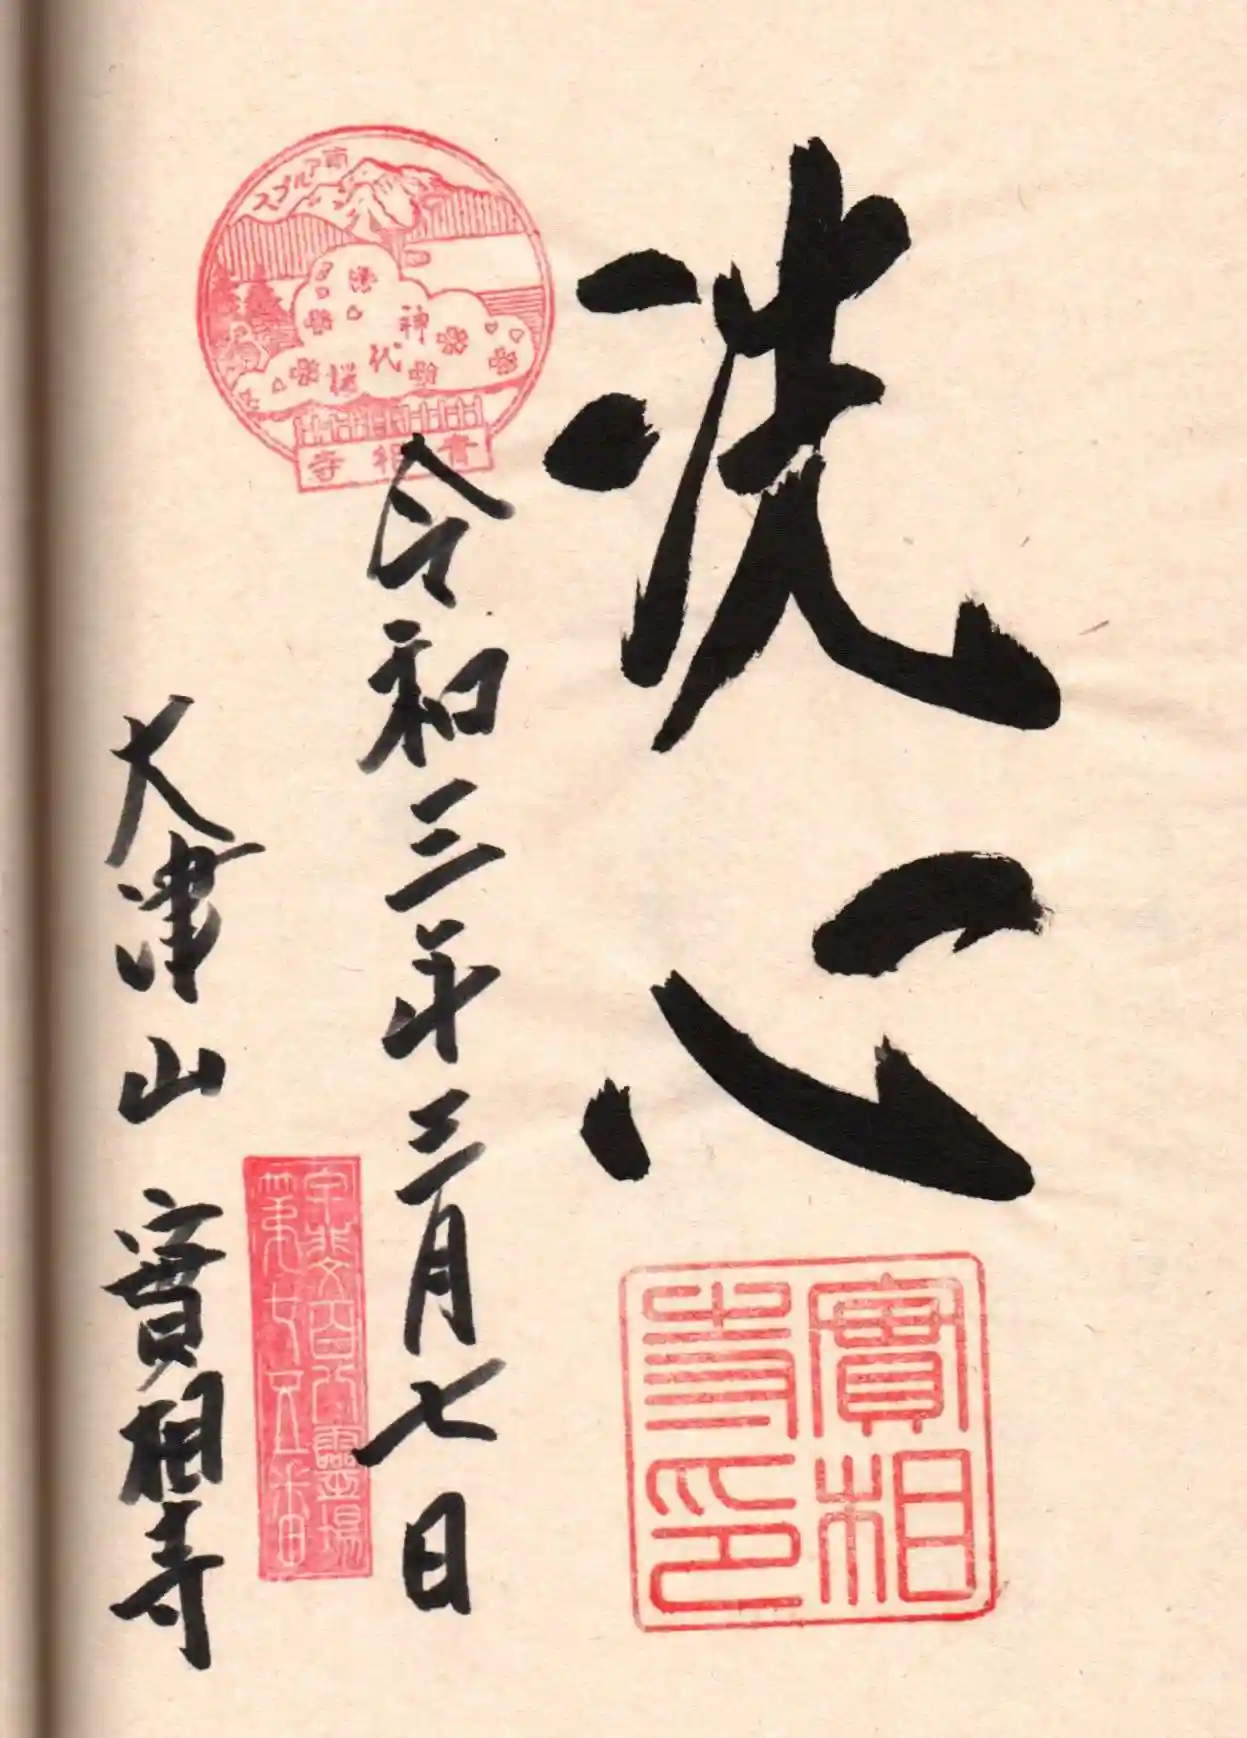 洗心
實相寺印
令和三年三月七日
南アルプス
神代桜
實相寺
甲斐百八靈場
第七五番
大津山實相寺